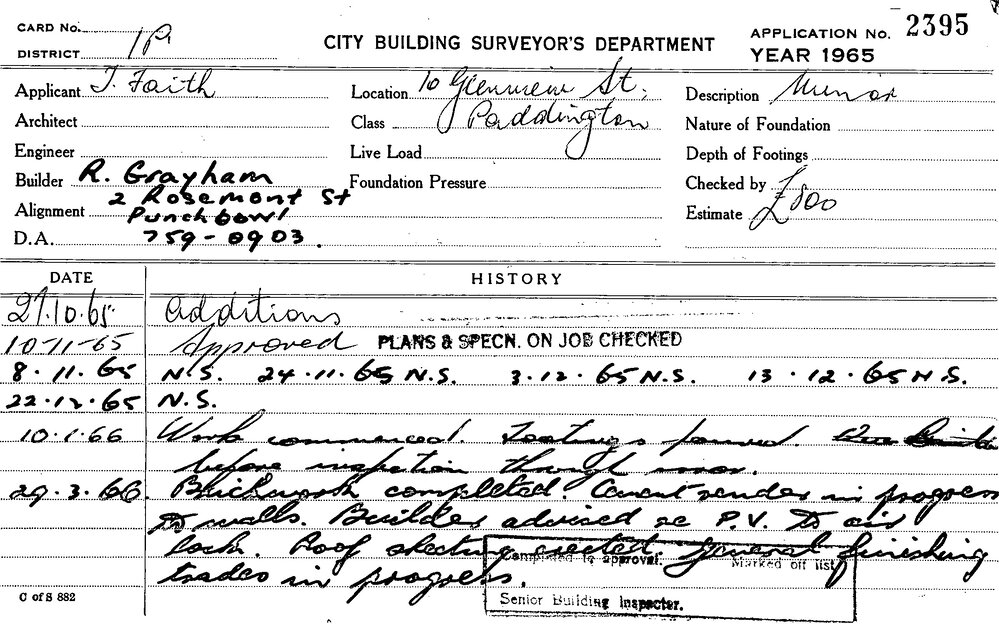 CARD No.
DISTRICT 1P.
CITY BUILDING SURVEYOR'S DEPARTMENT
APPLICATION No. 2395
YEAR 1965
Applicant J. Faith
Location 10 Glenview St,
Description Minor
Architect
Class Paddington
Nature of Foundation
Engineer
Live Load
Depth of Footings
Builder R. Grayham
Foundation Pressure
Checked by
2 Rosemont St
Alignment Punchbowl
Estimate £800
D.A. 759-0903.
DATE HISTORY
27.10.65. Additions
10-11-65 Approved PLANS & SPECN. ON JOB CHECKED
8.11.65 N.S. 24.11.65 N.S. 3.12.65 N.S. 13.12.65 N.S.
22.12.65 N.S.
10.1.66 Work commenced. Footings poured.
before inspection through error.
29.3.66. Brickwork completed. Cement render in progress
to walls. Builder advised re P.V. to air
lock. Roof sheeting erected. General finishing
trades in progress.
Completed to approval. Marked off list
Senior Building Inspector.
C of S 882